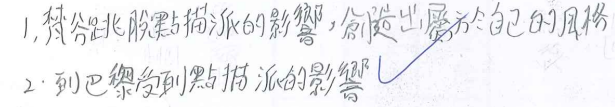 1. 梵谷跳脫點描派的影響,創造出屬於自己的風格
2. 到巴黎受到點描派的影響